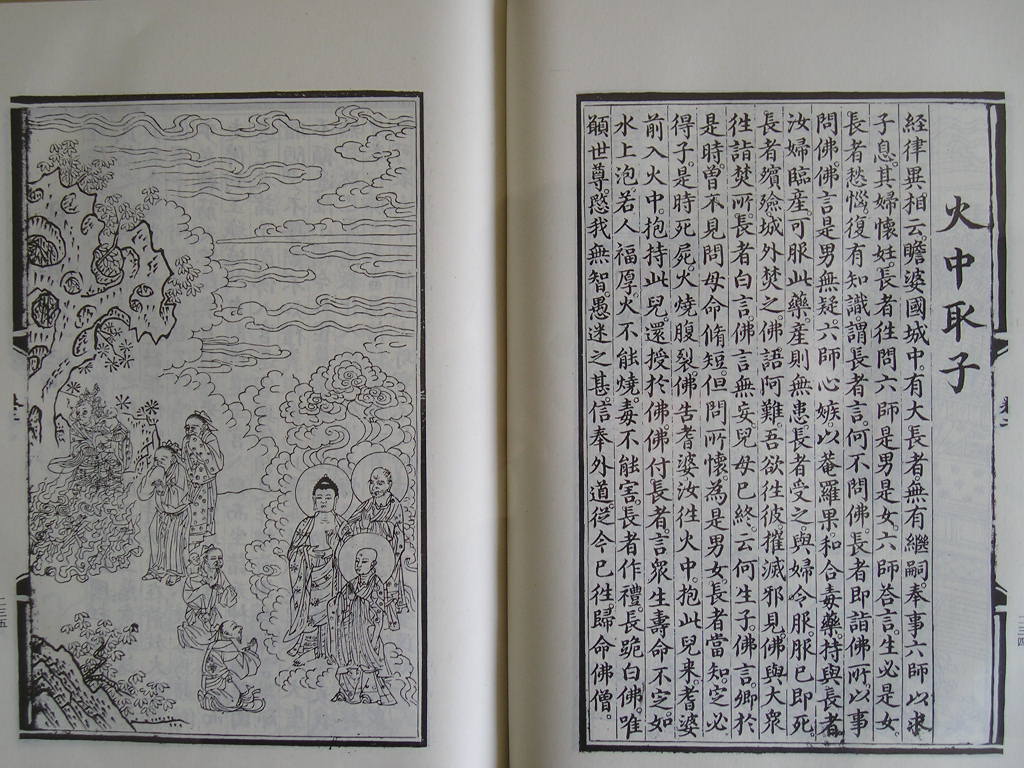 火中取子
經律異相云。瞻婆國城中。有大長者。無有繼嗣。奉事六師。以求
子息。其婦懷姙。長者徃問六師。是男是女。六師荅言。生必是女。
長者愁惱。復有知識。謂長者言。何不問佛。長者即詣佛所。以事
問佛。佛言是男無疑。六師心嫉。以菴羅果。和合毒藥。持與長者。
汝婦臨產。可服此藥。產則無患。長者受之。與婦令服。服已即死。
長者殯殮。城外焚之。佛語阿難。吾欲徃彼。摧滅邪見。佛與大眾
徃詣焚所。長者白言。佛言無妄。兒母已終。云何生子。佛言。卿於
是時。曾不見問母命脩短。但問所懷為是男女。長者當知。定必
得子。是時死屍。火燒腹裂。佛告耆婆。汝徃火中。抱此兒來。耆婆
前入火中。抱持此兒。還授於佛。佛付長者言。眾生壽命不定。如
水上泡。若人福厚。火不能燒。毒不能害。長者作禮。長跪白佛。唯
願世尊。愍我無智。愚迷之甚。信奉外道。從今已徃。歸命佛僧。
二三四
二三五